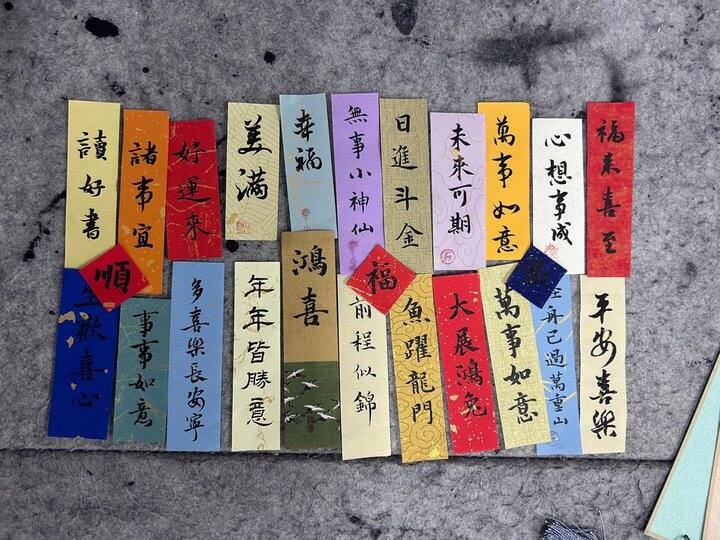 讀好書
諸事宜
好運來
美滿
幸福
無事小神仙
日進斗金
未來可期
萬事如意
心想事成
福來喜至
順
福
生歡喜心
事事如意
多喜樂長安寧
年年皆勝意
鴻喜
前程似錦
魚躍龍門
大展鴻兔
萬事如意
舟已過萬重山
平安喜樂